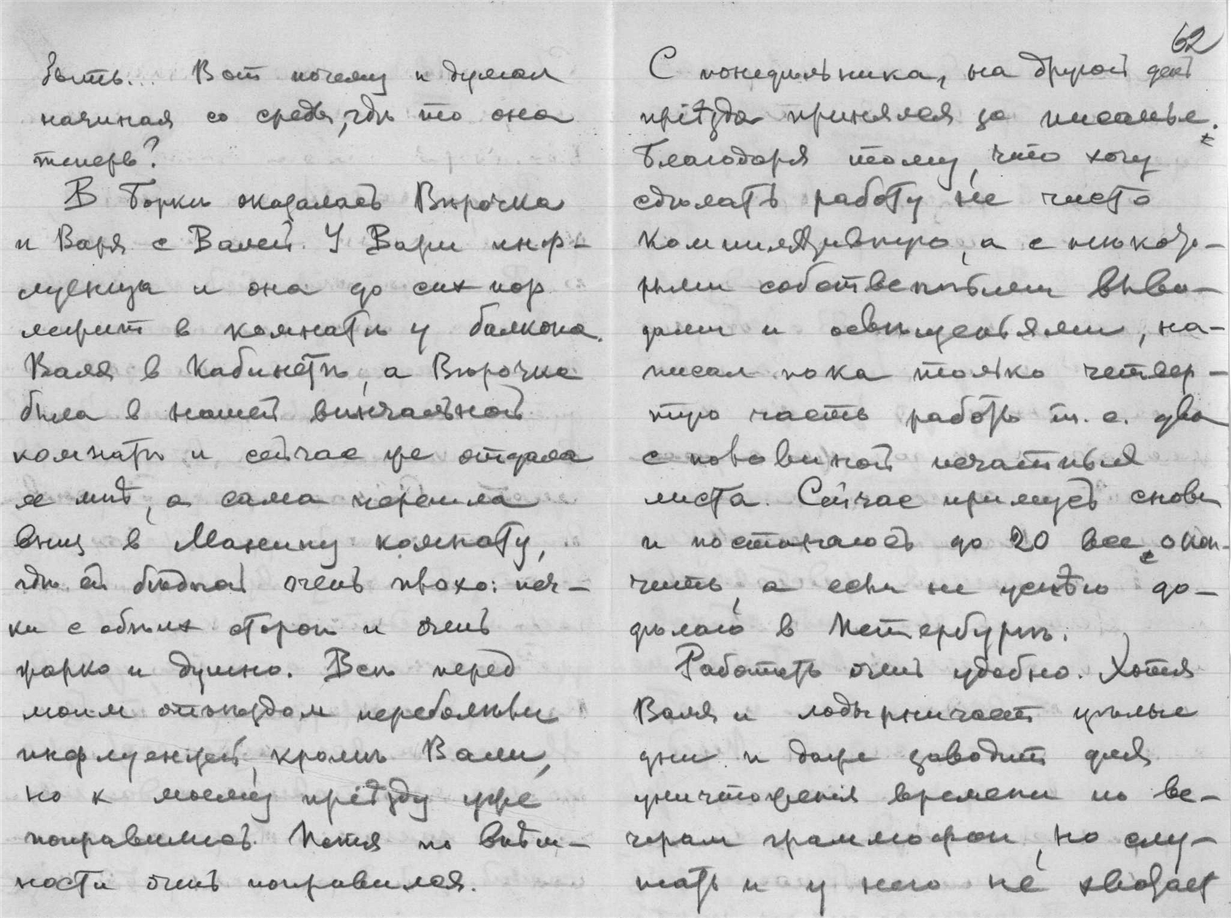 быть... Вот почему и думал
начиная со среды, гдѣ то она
теперь?
В Боркѣ оказалась Вѣрочка
и Варя с Валей. У Вари инф-
луенца и она до сих пор
лежит в комнатѣ у балкона.
Валя в кабинетѣ, а Вѣрочка
была в нашей вѣнчальной
комнатѣ и сейчас же отдала
ее мнѣ, а сама перешла
вниз в Манину комнату,
гдѣ ей бѣдной очень плохо: печ-
ки с обѣих сторон и очень
жарко и душно. Всѣ перед
моим отъѣздом переболѣли
инфлуенцей, кромѣ Вали,
но к моему прiѣзду уже
поправились. Петя по види-
мости очень поправился.
62
С понедѣльника, на другой день
прiѣзда принялся за писанье.
Благодаря тому, что хочу
сдѣлать работу не чисто
компилятивную, а с нѣкото-
рыми собственными выво-
дами и освѣщеньями, на-
писал пока только четвер-
тую часть работы т. е. два
с половиной печатных
листа. Сейчас примусь снова
и постараюсь до 20 все окон-
чить, а если не успѣю до-
дѣлаю в Петербургѣ.
Работать очень удобно. Хотя
Валя и лодырничает цѣлые
дни и даже заводит для
уничтоженiя времени по ве-
черам граммофон, но слу-
шать и у него не хватает